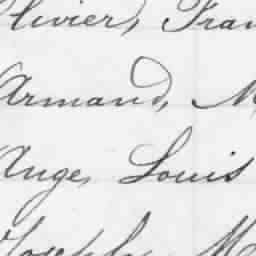 Olivier, Fran
Armand, M
Ange, Louis
Joseph, M